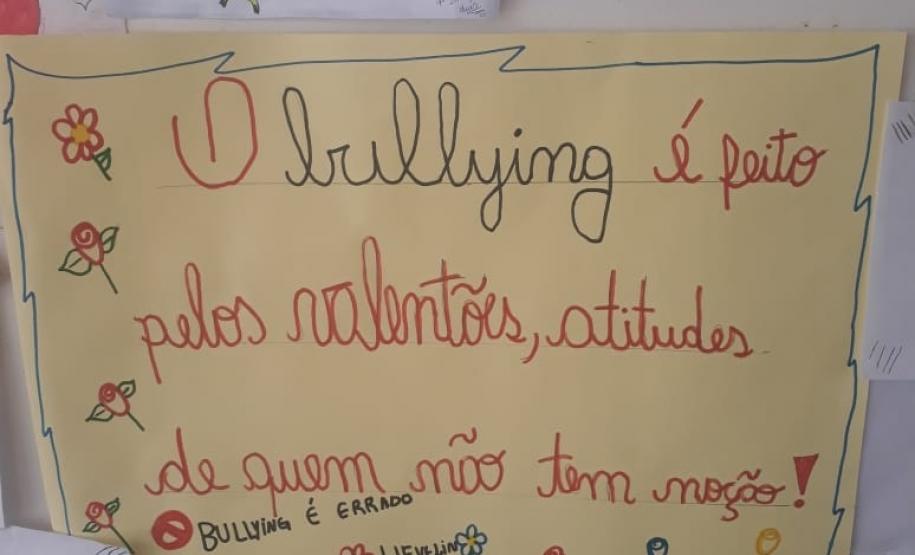 O bullying é feito
pelos valentões, atitudes
de quem não tem noção!
BULLYING É ERRADO